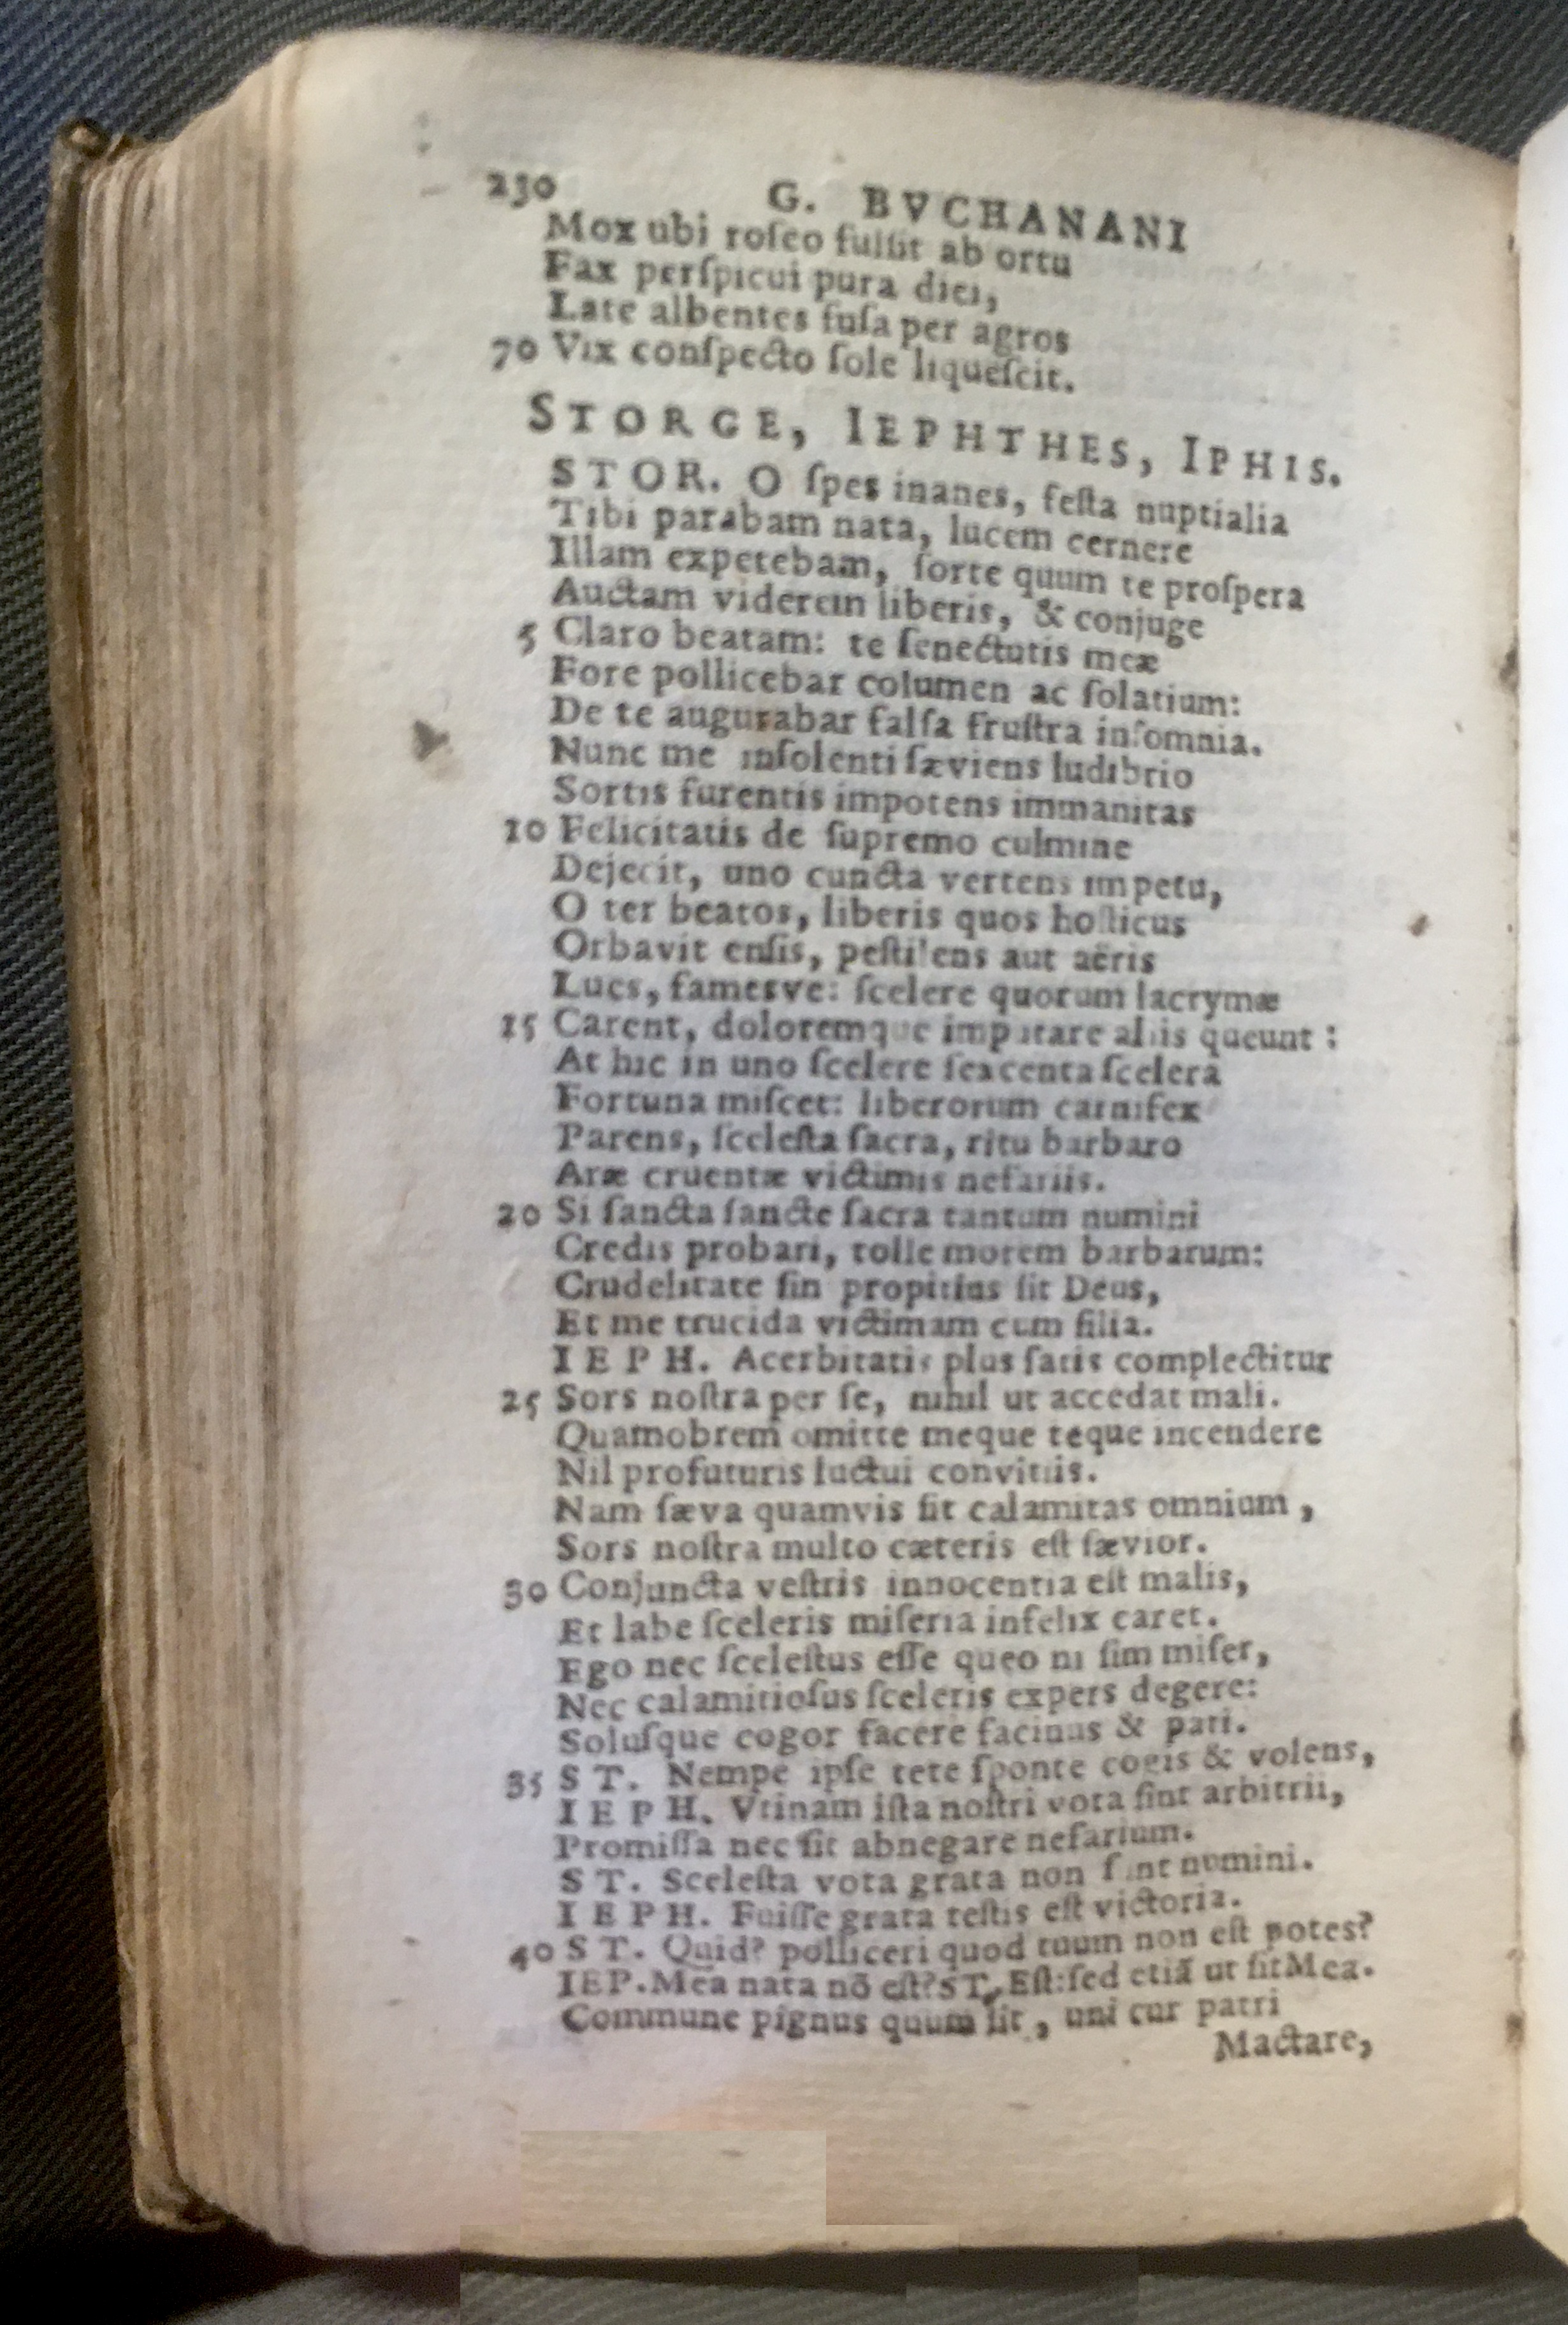 230 G. BVCHANANI
Mox ubi roſeo fulſit ab ortu
Fax perſpicui pura diei,
Late albentes fuſa per agros
70 Vix conſpecto ſole liqueſcit.
STORGE, IEPHTHES, IPHIS.
STOR. O ſpes inanes, feſta nuptialia
Tibi parabam nata, lucem cernere
Illam expetebam, ſorte quum te proſpera
Auctam viderem liberis, & conjuge
5 Claro beatam: te ſenectutis meæ
Fore pollicebar columen ac ſolatium:
De te augurabar falſa fruſtra inſomnia.
Nunc me inſolenti ſæviens ludibrio
Sortis furentis impotens immanitas
10 Felicitatis de ſupremo culmine
Dejecit, uno cuncta vertens impetu,
O ter beatos, liberis quos hoſticus
Orbavit enſis, peſtilens aut aëris
Lues, famesve: ſcelere quorum lacrymæ
15 Carent, doloremque imputare aliis queunt:
At hic in uno ſcelere ſexcenta ſcelera
Fortuna miſcet: liberorum carnifex
Parens, ſceleſta ſacra, ritu barbaro
Aræ cruentæ victimis nefariis.
20 Si ſancta ſancte ſacra tantum numini
Credis probari, tolle morem barbarum:
Crudelitate ſin propitius ſit Deus,
Et me trucida victimam cum filia.
IEPH. Acerbitatis plus ſatis complectitur
25 Sors noſtra per ſe, nihil ut accedat mali.
Quamobrem omitte meque teque incendere
Nil profuturis luctui convitiis.
Nam ſæva quamvis ſit calamitas omnium,
Sors noſtra multo cæteris eſt ſævior.
30 Conjuncta veſtris innocentia eſt malis,
Et labe ſceleris miſeria infelix caret.
Ego nec ſceleſtus eſſe queo ni ſim miſer,
Nec calamitioſus ſceleris expers degere:
Soluſque cogor facere facinus & pati.
35 ST. Nempe ipſe tete ſponte cogis & volens,
IEPH. Vtinam iſta noſtri vota ſint arbitrii,
Promiſſa nec ſit abnegare nefarium.
ST. Sceleſta vota grata non ſunt numini.
IEPH. Fuiſſe grata teſtis eſt victoria.
40 ST. Quid? polliceri quod tuum non eſt potes?
IEP. Mea nata nō eſt? ST. Eſt: ſed etiā ut ſit Mea.
Commune pignus quum ſit, uni cur patri
Mactare,